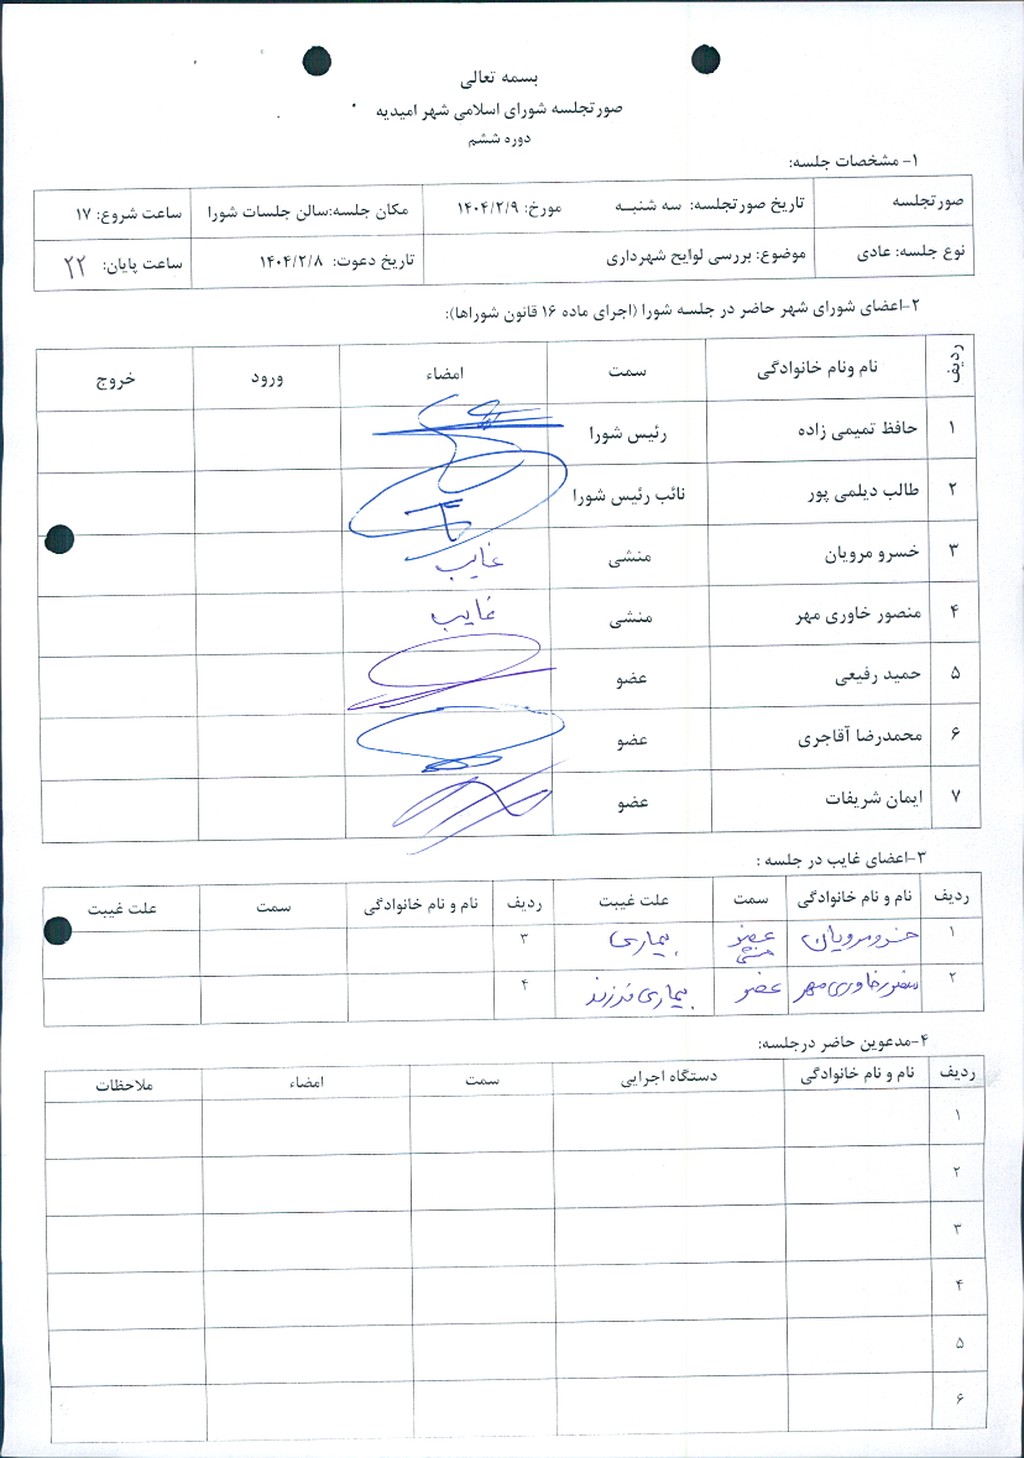 بسمه تعالی
صورتجلسه شورای اسلامی شهر امیدیه
دوره ششم
۱- مشخصات جلسه:
صورتجلسه تاریخ صورتجلسه: سه شنبه مورخ: ۱۴۰۴/۲/۹ مکان جلسه:سالن جلسات شورا ساعت شروع: ۱۷
نوع جلسه: عادی موضوع: بررسی لوایح شهرداری تاریخ دعوت: ۱۴۰۴/۲/۸ ساعت پایان: ۲۲
۲-اعضای شورای شهر حاضر در جلسه شورا (اجرای ماده ۱۶ قانون شوراها):
ردیف نام ونام خانوادگی سمت امضاء ورود خروج
۱ حافظ تمیمی زاده رئیس شورا
۲ طالب دیلمی پور نائب رئیس شورا
۳ خسرو مرویان منشی غایب
۴ منصور خاوری مهر منشی غایب
۵ حمید رفیعی عضو
۶ محمدرضا آقاجری عضو
۷ ایمان شریفات عضو
۳-اعضای غایب در جلسه :
ردیف نام و نام خانوادگی سمت علت غیبت ردیف نام و نام خانوادگی سمت علت غیبت
۱ خسرو مرویان عضو منشی بیماری ۳
۲ منصور خاوری مهر عضو بیماری فرزند ۴
۴-مدعوین حاضر درجلسه:
ردیف نام و نام خانوادگی دستگاه اجرایی سمت امضاء ملاحظات
۱
۲
۳
۴
۵
۶